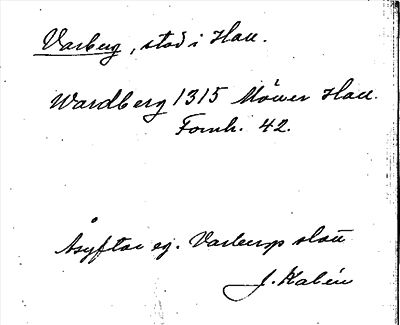 Varberg, stad i Hall.
Wardberg 1315 Möller Hall.
Fornh. 42.
Åsyftar eg. Varbergs slott
J. Kalén